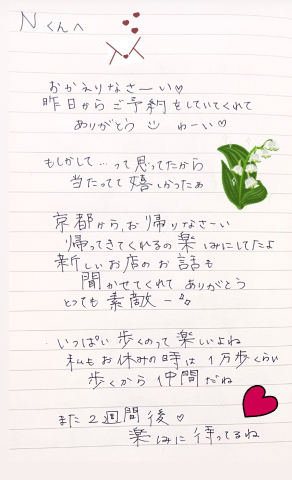 Nくんへ
おかえりなさーい♡
昨日からご予約をしていてくれて
ありがとう☺ わーい♡
もしかして…って思ってたから
当たってて嬉しかったぁ
京都から、お帰りなさーい
帰ってきてくれるの楽しみにしてたよ
新しいお店のお話も
聞かせてくれてありがとう
とっても素敵ー
いっぱい歩くのって楽しいよね
私もお休みの時は1万歩くらい
歩くから仲間だね
また2週間後♡
楽しみに待ってるね